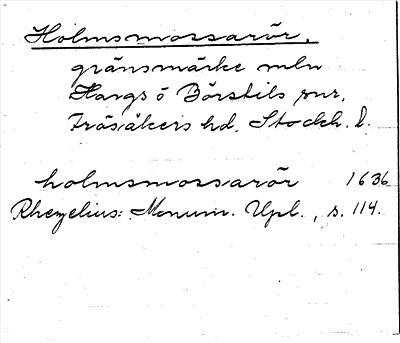 Holmsmossarör,
gränsmärke mln
Hargs o Börstils snr,
Frösåkers hd. Stockh. l.
holmsmossarör 1636
Rhezelius: Monum. Upl., s. 114.